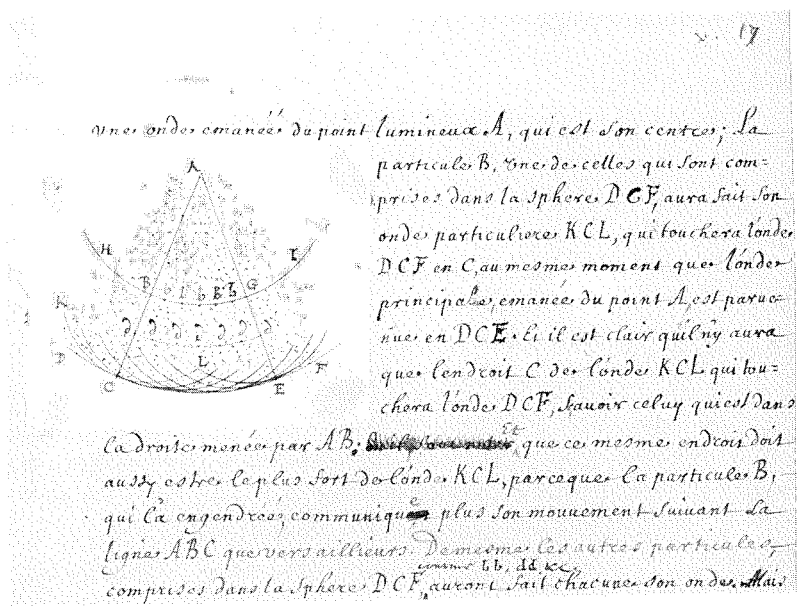 x. 17
une onde emanée du point lumineux A, qui est son centre; La
particule B, une de celles qui sont com=
prises dans la sphere DCF, aura fait son
onde particuliere KCL, qui touchera l'onde
DCF en C, au mesme moment que l'onde
principale, emanée du point A, est parve-
nue en DCE. Et il est clair qu'il n'y aura
que l'endroit C de l'onde KCL qui tou=
chera l'onde DCF, sçavoir celuy qui est dans
la droite menée par AB. Et que ce mesme endroit doit
aussy estre le plus fort de l'onde KCL, parceque la particule B,
qui l'a engendrée, communique plus son mouvement suivant la
ligne ABC que vers aillieurs. De mesme les autres particules,
comprises dans la sphere DCF, comme bb, dd &c. auront fait chacune son onde. Mais
A
H
I
B
b
b
b
b
G
K
d
d
d
d
d
d
D
L
F
C
E